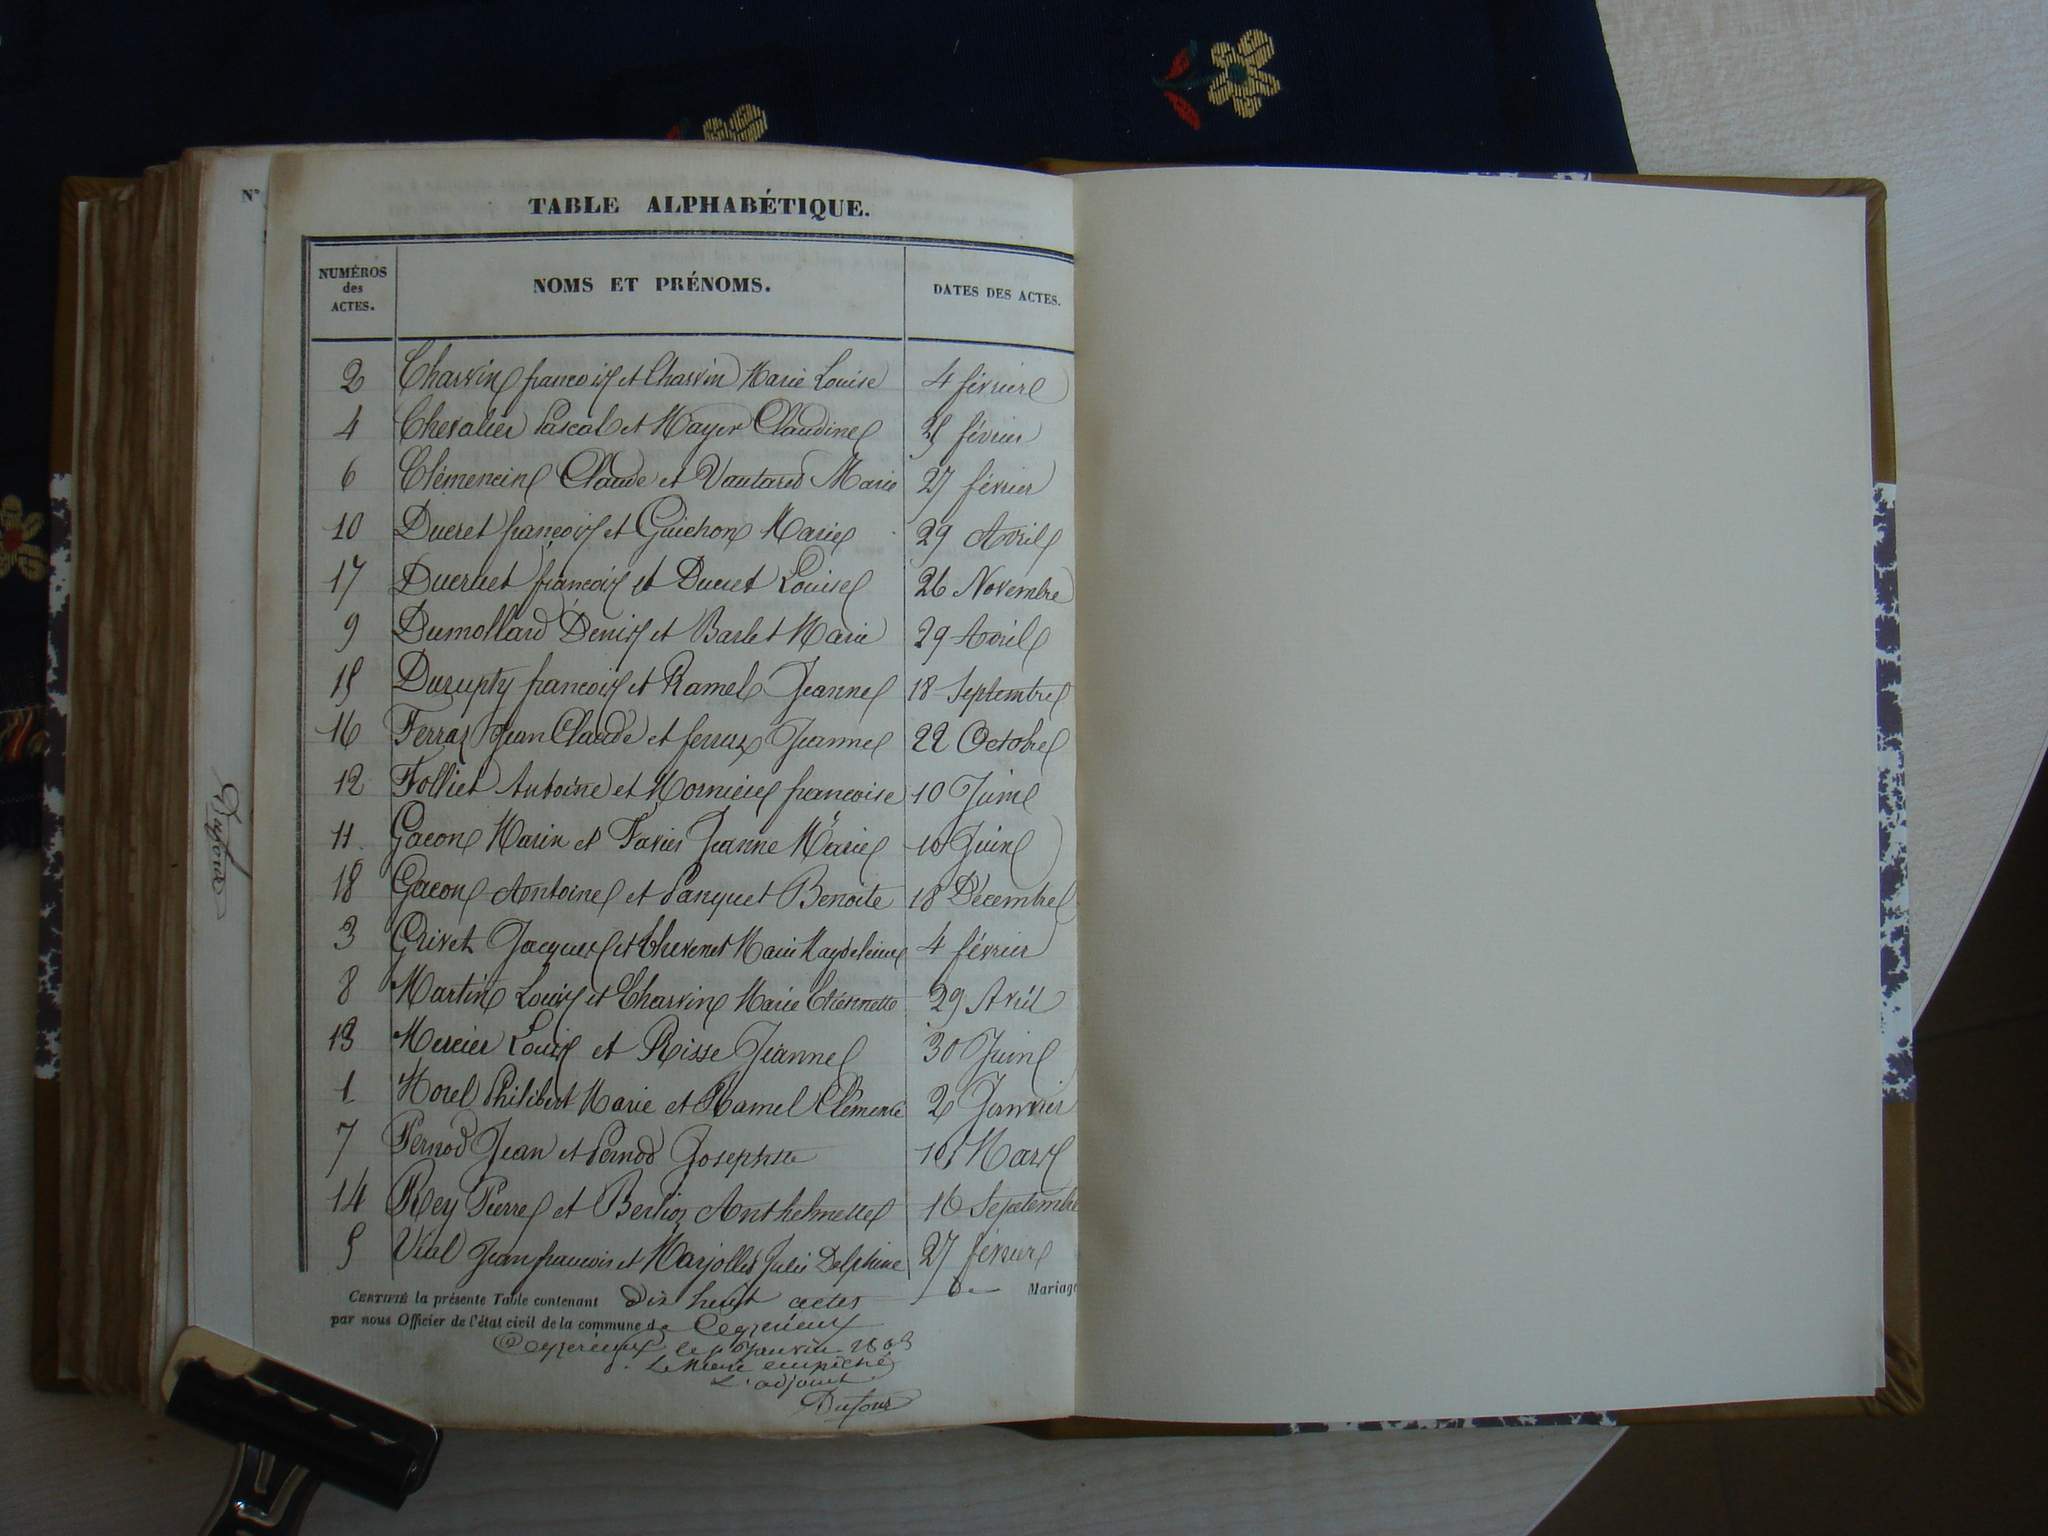 N°
TABLE ALPHABÉTIQUE.
NUMÉROS des ACTES. NOMS ET PRÉNOMS. DATES DES ACTES.
2 Charvin françois et Charvin Marie Louise 4 février
4 Chevalier Pascal et Mayer Claudine février
6 Clémencin Claude et Vautaret Marie 27 février
10 Ducret françois et Guichon Marie 29 Avril
17 Ducruet françois et Ducret Louise 26 Novembre
9 Dumollard Denis et Barlet Marie 29 Avril
15 Durupty francois et Ramel Jeanne 18 Septembre
16 Ferraz Jean Claude et ferraz Jeanne 22 Octobre
12 Folliet Antoine et Mornieux francoise 10 Juin
11 Gacon Marin et Favier Jeanne Marie 10 Juin
18 Gacon Antoine et Panquet Benoite 18 Décembre
3 Grivet Jacques et Thevenet Marie Magdeleine 4 février
8 Martin Louis et Charvin Marie Etiennette 29 Avril
13 Mercier Louis et Risse Jeanne 30 Juin
1 Morel Philibert Marie et Ramel Clémence 2 Janvier
7 Pernod Jean et Pernod Josephte 10 Mars
14 Rey Pierre et Berlioz Anthelmette 16 Septembre
5 Vial Jean francois et Marjollet Julie Delphine 27 février
CERTIFIÉ la présente Table contenant dix huit actes de Mariage
par nous Officier de l'état civil de la commune de Ceyzerieux
Ceyzerieux le Janvier 1863
Le Maire empêché
L'adjoint
Dufour
Dufour